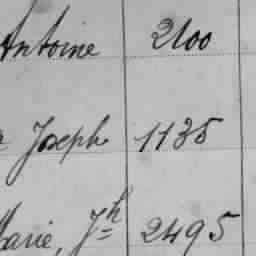 Antoine 2100
Joseph 1135
Marie, Jh 2495